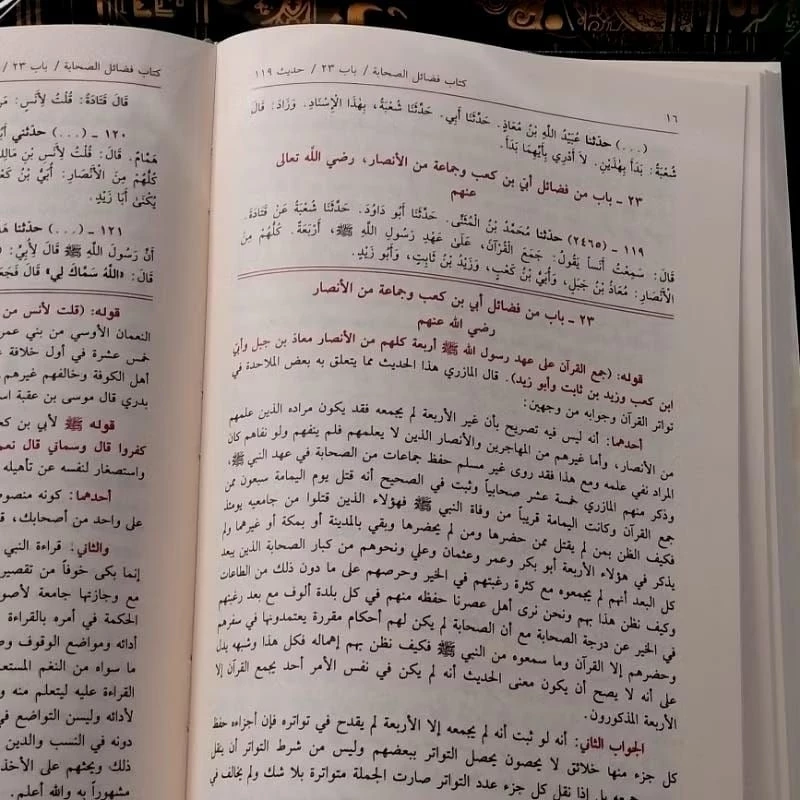 ١٦
كتاب فضائل الصحابة / باب ٢٣ / حديث ١١٩
(...) حدّثنا عُبَيْدُ اللَّهِ بْنُ مُعَاذٍ. حَدَّثَنَا أَبِي. حَدَّثَنَا شُعْبَةُ، بِهَذَا الْإِسْنَادِ. وَزَادَ: قَالَ
شُعْبَةُ: بَدَأَ بِهَذَيْنِ. لاَ أَدْرِي بِأَيِّهِمَا بَدَأَ.
٢٣ ـ باب من فضائل أبيّ بن كعب وجماعة من الأنصار، رضي اللَّه تعالى
عنهم
١١٩ ـ (٢٤٦٥) حدّثنا مُحَمَّدُ بْنُ الْمُثَنَّى. حَدَّثَنَا أَبُو دَاوُدَ. حَدَّثَنَا شُعْبَةُ عَنْ قَتَادَةَ.
قَالَ: سَمِعْتُ أَنَساً يَقُولُ: جَمَعَ الْقُرْآنَ، عَلَىٰ عَهْدِ رَسُولِ اللَّهِ ﷺ، أَرْبَعَةٌ. كُلُّهُمْ مِنَ
الْأَنْصَارِ: مُعَاذُ بْنُ جَبَلٍ، وَأُبَيُّ بْنُ كَعْبٍ، وَزَيْدُ بْنُ ثَابِتٍ، وَأَبُو زَيْدٍ.
٢٣ ـ باب من فضائل أبي بن كعب وجماعة من الأنصار
رضي الله عنهم
قوله: (جمع القرآن على عهد رسول الله ﷺ أربعة كلهم من الأنصار معاذ بن جبل وأبي
ابن كعب وزيد بن ثابت وأبو زيد). قال المازري هذا الحديث مما يتعلق به بعض الملاحدة في
تواتر القرآن وجوابه من وجهين:
أحدهما: أنه ليس فيه تصريح بأن غير الأربعة لم يجمعه فقد يكون مراده الذين علمهم
من الأنصار، وأما غيرهم من المهاجرين والأنصار الذين لا يعلمهم فلم ينفهم ولو نفاهم كان
المراد نفي علمه ومع هذا فقد روى غير مسلم حفظ جماعات من الصحابة في عهد النبي ﷺ،
وذكر منهم المازري خمسة عشر صحابياً وثبت في الصحيح أنه قتل يوم اليمامة سبعون ممن
جمع القرآن وكانت اليمامة قريباً من وفاة النبي ﷺ فهؤلاء الذين قتلوا من جامعيه يومئذ
فكيف الظن بمن لم يقتل ممن حضرها ومن لم يحضرها وبقي بالمدينة أو بمكة أو غيرهما ولم
يذكر في هؤلاء الأربعة أبو بكر وعمر وعثمان وعلي ونحوهم من كبار الصحابة الذين يبعد
كل البعد أنهم لم يجمعوه مع كثرة رغبتهم في الخير وحرصهم على ما دون ذلك من الطاعات
وكيف نظن هذا بهم ونحن نرى أهل عصرنا حفظه منهم في كل بلدة ألوف مع بعد رغبتهم
في الخير عن درجة الصحابة مع أن الصحابة لم يكن لهم أحكام مقررة يعتمدونها في سفرهم
وحضرهم إلا القرآن وما سمعوه من النبي ﷺ فكيف نظن بهم إهماله فكل هذا وشبهه يدل
على أنه لا يصح أن يكون معنى الحديث أنه لم يكن في نفس الأمر أحد يجمع القرآن إلا
الأربعة المذكورون.
الجواب الثاني: أنه لو ثبت أنه لم يجمعه إلا الأربعة لم يقدح في تواتره فإن أجزاءه حفظ
كل جزء منها خلائق لا يحصون يحصل التواتر ببعضهم وليس من شرط التواتر أن ينقل
بل إذا نقل كل جزء عدد التواتر صارت الجملة متواترة بلا شك ولم يخالف في
كتاب فضائل الصحابة / باب ٢٣ /
قَالَ قَتَادَةُ: قُلْتُ لِأَنَسٍ:
١٢٠ ـ (...) حدّثني
هَمَّامٌ. قَالَ: قُلْتُ لِأَنَسِ بْنِ
كُلُّهُمْ مِنَ الْأَنْصَارِ: أُبَيُّ بْنُ
يُكْنَىٰ أَبَا زَيْدٍ.
١٢١ ـ (...) حدّثنا
أَنَّ رَسُولَ اللَّهِ ﷺ قَالَ لِأُبَيٍّ:
قَالَ: «اللَّهُ سَمَّاكَ لِي» قَالَ
قوله: (قلت لأنس من
النعمان الأوسي من بني
خمس عشرة في أول خلافة
أهل الكوفة وخالفهم غيرهم
بدري قال موسى بن عقبة
قوله ﷺ لأبي بن
كفروا قال وسماني قال
واستصغار لنفسه عن تأهيله
أحدهما: كونه
على واحد من أصحابك،
والثاني: قراءة النبي
إنما بكى خوفاً من تقصير
مع وجازتها جامعة
الحكمة في أمره بالقراءة
أدائه ومواضع الوقوف
ما سواه من النغم
القراءة عليه ليتعلم منه
لأدائه وليس التواضع في
دونه في النسب والدين
ذلك ويحثهم على
مشهوراً به والله أعلم.